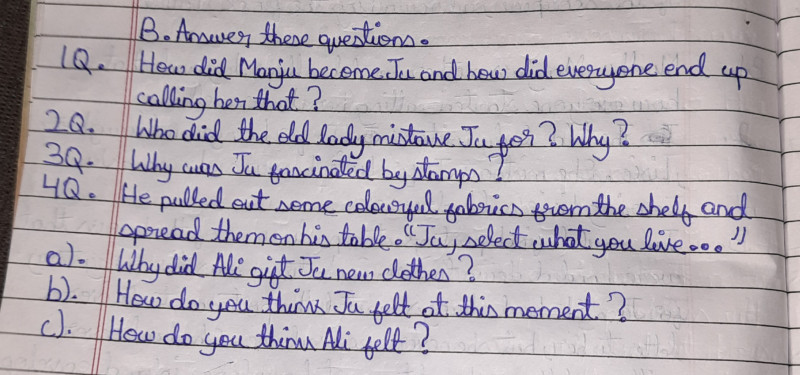 B. Answer these questions.
1Q. How did Manju become Ju and how did everyone end up
calling her that?
2Q. Who did the old lady mistake Ju for? Why?
3Q. Why was Ju fascinated by stamps?
4Q. He pulled out some colourful fabrics from the shelf and
spread them on his table. "Ju, select what you like..."
a). Why did Ali gift Ju new clothes?
b). How do you think Ju felt at this moment?
c). How do you think Ali felt?